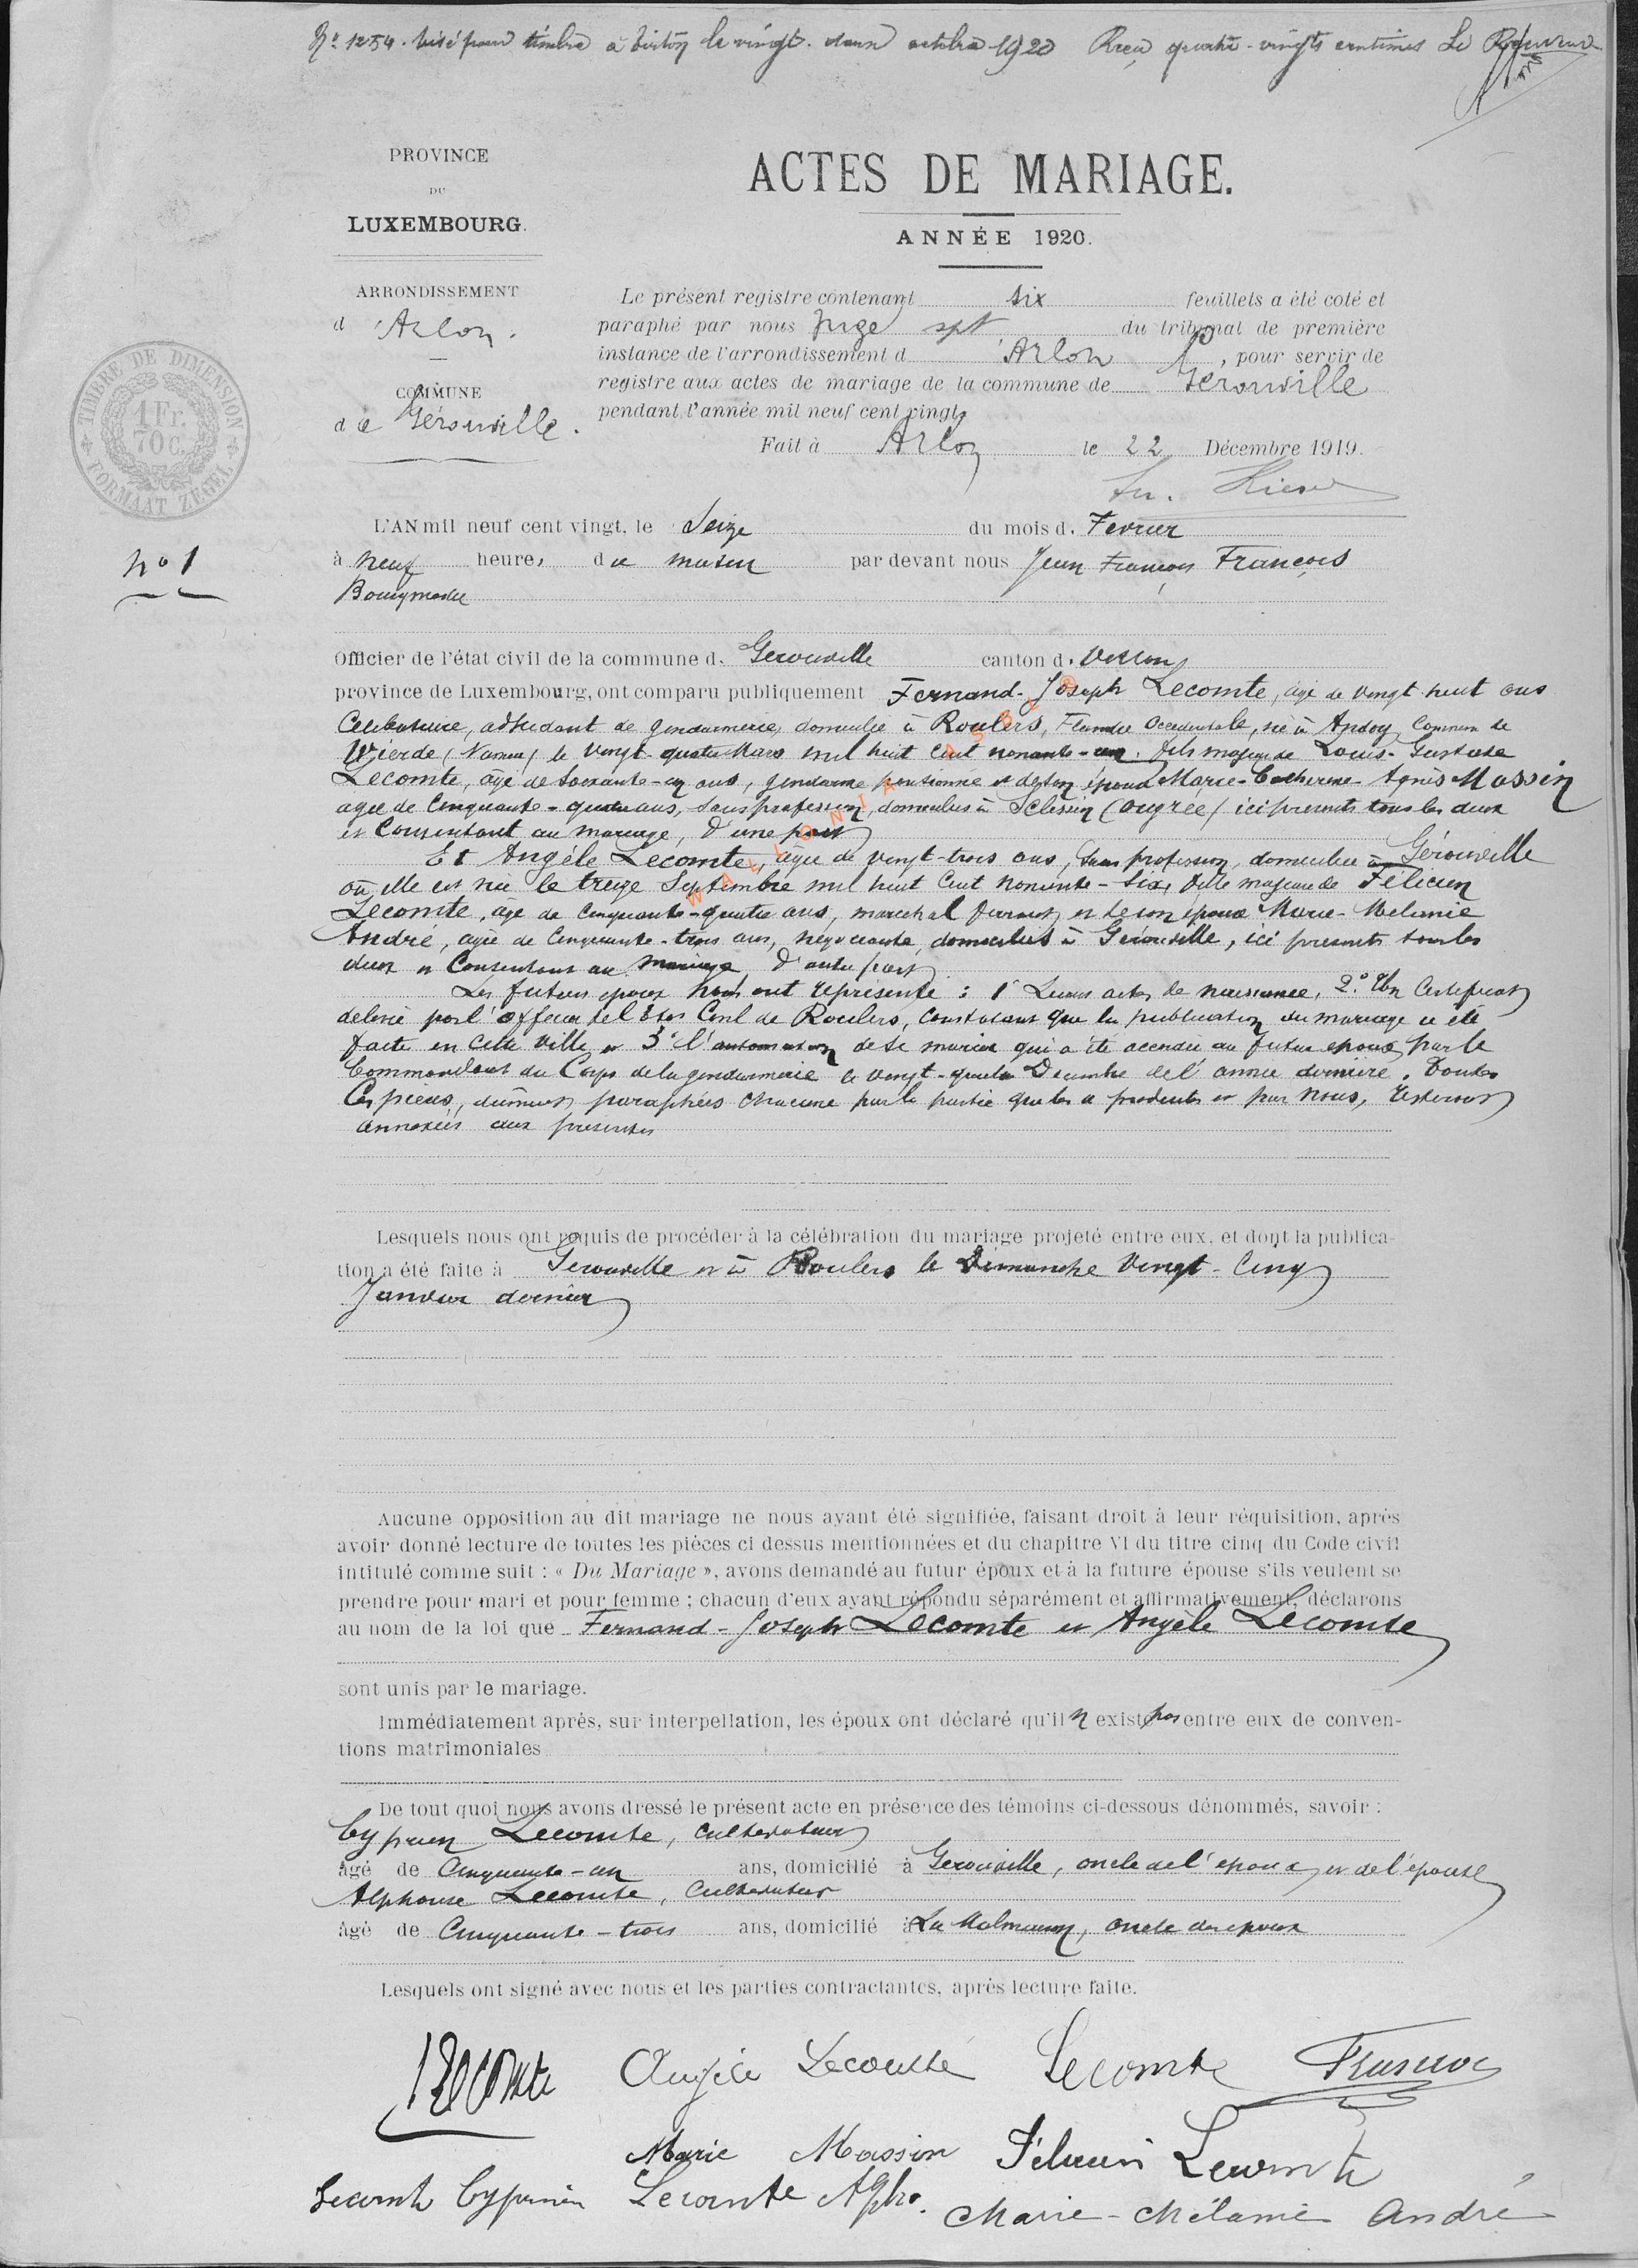 No 1254. Visé pour timbre à Virton le vingt deux octobre 1920 Reçu quatre-vingts centimes Le Receveur
PROVINCE
DU
LUXEMBOURG.
ACTES DE MARIAGE.
ANNÉE 1920.
ARRONDISSEMENT
d'Arlon.
COMMUNE
de Gérouville.
TIMBRE DE DIMENSION
1 Fr.
70 C.
FORMAAT ZEGEL
Le présent registre contenant six feuillets a été coté et
paraphé par nous Juge spt du tribunal de première
instance de l'arrondissement d'Arlon, pour servir de
registre aux actes de mariage de la commune de Gérouville
pendant l'année mil neuf cent vingt.
Fait à Arlon le 22 Décembre 1919.
No 1
L'AN mil neuf cent vingt, le Seize du mois d. Fevrier
à neuf heures du matin par devant nous Jean François François
Bourgmestre
Officier de l'état civil de la commune d. Gerouville canton d. Virton
province de Luxembourg, ont comparu publiquement Fernand-Joseph Lecomte, âgé de vingt huit ans
Célibataire, adjudant de gendarmerie, domicilié à Roulers, Flandre Occidentale, né à Andoy, Commune de
Wierde (Namur) le vingt-quatre Mars mil huit cent nonante-un. fils majeur de Louis-Gustave
Lecomte, âgé de soixante-un ans, gendarme pensionné et de son épouse Marie-Catherine-Agnès Massin
agée de Cinquante-quatre ans, sans profession, domiciliés à Sclessin (Ougrée) ici présents tous les deux
et Consentant au mariage, d'une part
Et Angèle Lecomte, âgée de vingt-trois ans, sans profession, domiciliée à Gérouville
où elle est née le treize Septembre mil huit Cent nonante-six, fille majeure de Félicien
Lecomte, âgé de Cinquante-quatre ans, maréchal ferrant et de son épouse Marie-Mélanie
André, agée de Cinquante-trois ans, négociante, domiciliés à Gérouville, ici présents tous les
deux et Consentant au mariage, d'autre part
Les futurs époux nous ont représenté : 1° Leurs actes de naissance, 2° Un Certificat
délivré par l'officier de l'Etat Civil de Roulers, constatant que la publication du mariage a été
faite en cette ville et 3° l'autorisation de se marier qui a été accordée au futur époux par le
Commandant du Corps de la gendarmerie le vingt-quatre Décembre de l'année dernière. Toutes
Ces pièces, dûment paraphées chacune par la partie qui les a produites et par nous, resteront
annexées aux présentes
WALLONIA ASBL ©
Lesquels nous ont requis de procéder à la célébration du mariage projeté entre eux, et dont la publica-
tion a été faite à Gerouville et à Roulers le Dimanche Vingt-Cinq
Janvier dernier
Aucune opposition au dit mariage ne nous ayant été signifiée, faisant droit à leur réquisition, après
avoir donné lecture de toutes les pièces ci dessus mentionnées et du chapitre VI du titre cinq du Code civil
intitulé comme suit : « Du Mariage », avons demandé au futur époux et à la future épouse s'ils veulent se
prendre pour mari et pour femme ; chacun d'eux ayant répondu séparément et affirmativement, déclarons
au nom de la loi que Fernand-Joseph Lecomte et Angèle Lecomte
sont unis par le mariage.
Immédiatement après, sur interpellation, les époux ont déclaré qu'il n'existe pas entre eux de conven-
tions matrimoniales
De tout quoi nous avons dressé le présent acte en présence des témoins ci-dessous dénommés, savoir :
Cyprien Lecomte, Cultivateur
âgé de Cinquante-un ans, domicilié à Gerouville, oncle de l'époux et de l'épouse
Alphonse Lecomte, Cultivateur
âgé de Cinquante-trois ans, domicilié à La Malmaison, oncle des époux
Lesquels ont signé avec nous et les parties contractantes, après lecture faite.
Lecomte Angèle Lecomte Lecomte François
Marie Massin Félicien Lecomte
Lecomte Cyprien Lecomte Alph. Marie-Mélanie André